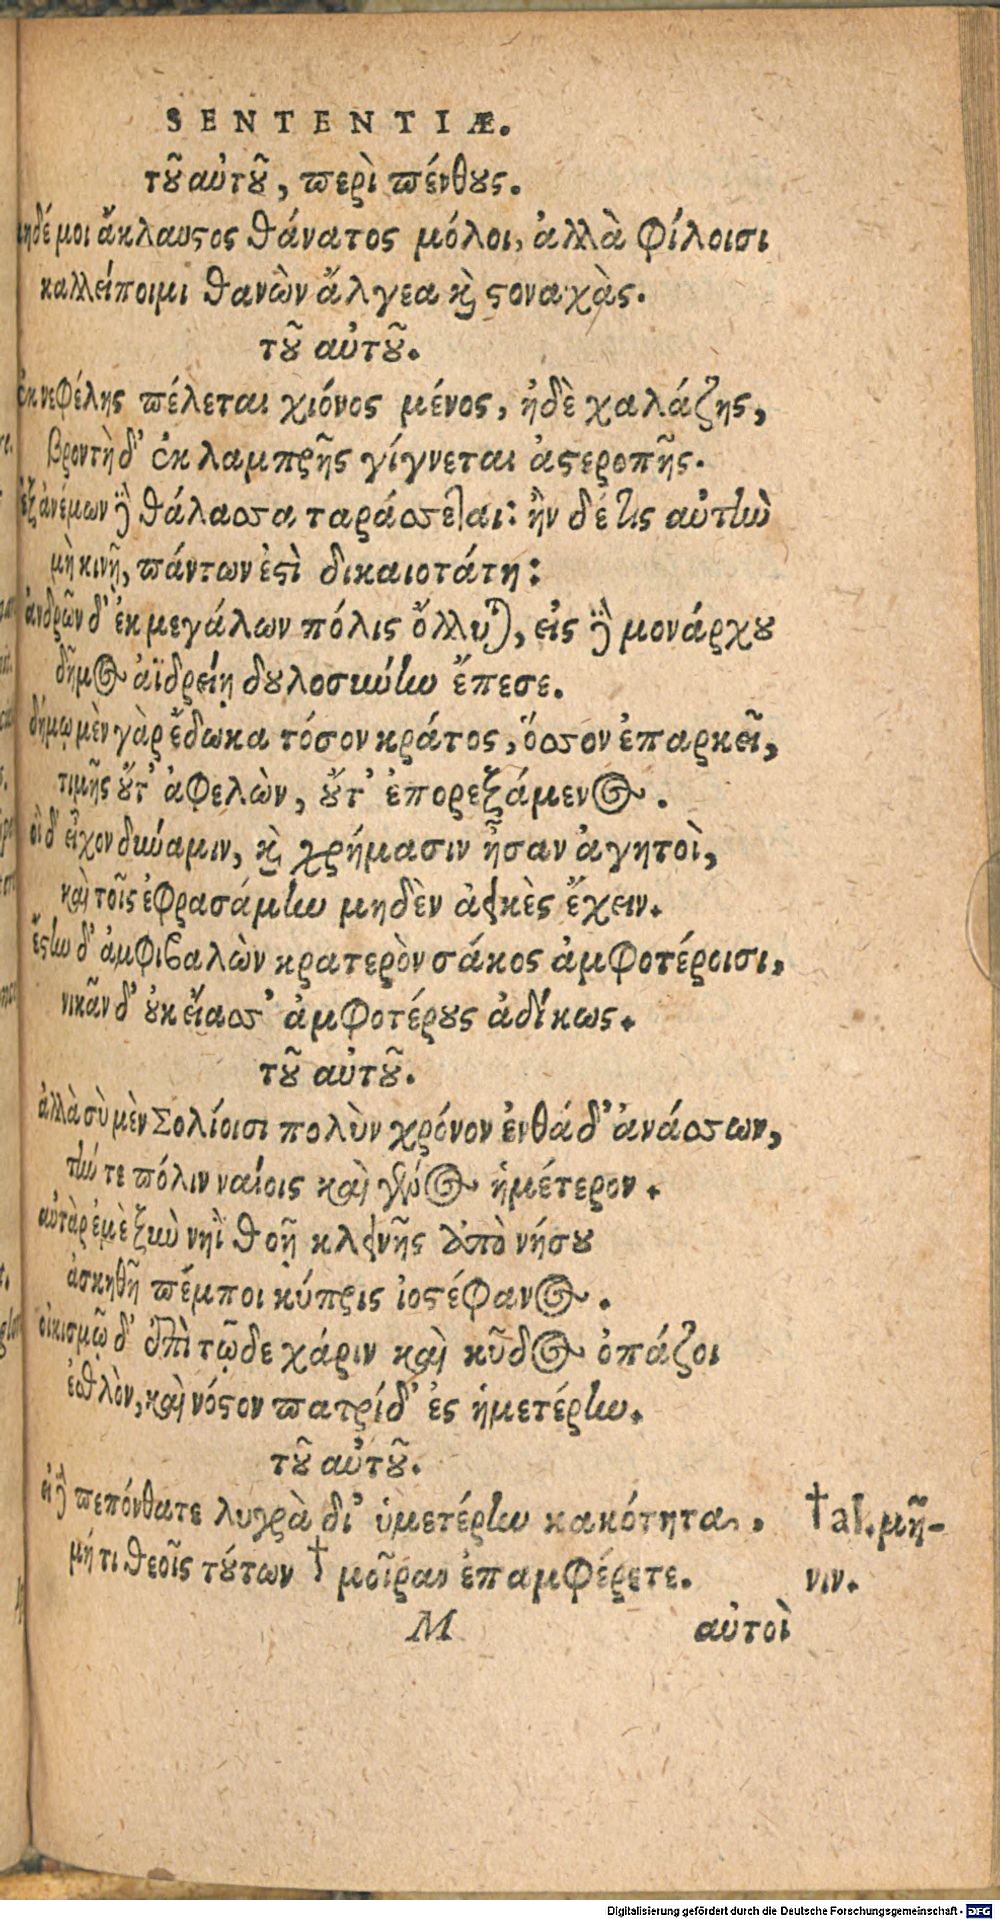 SENTENTIÆ.
τοῦ αὐτοῦ, περὶ πένθους.
μηδέ μοι ἄκλαυστος θάνατος μόλοι, ἀλλὰ φίλοισι
καλλείποιμι θανὼν ἄλγεα καὶ στοναχὰς.
τοῦ αὐτοῦ.
ἐκ νεφέλης πέλεται χιόνος μένος, ἠδὲ χαλάζης,
βροντὴ δ' ἐκ λαμπρῆς γίγνεται ἀστεροπῆς.
ἐξ ἀνέμων δὲ θάλασσα ταράσσεται: ἢν δέ τις αὐτὴν
μὴ κινῇ, πάντων ἐστὶ δικαιοτάτη:
ἀνδρῶν δ' ἐκ μεγάλων πόλις ὄλλυται, εἰς δὲ μονάρχου
δῆμος ἀϊδρείῃ δουλοσύνην ἔπεσε.
δήμῳ μὲν γὰρ ἔδωκα τόσον κράτος, ὅσσον ἐπαρκεῖ,
τιμῆς οὔτ' ἀφελὼν, οὔτ' ἐπορεξάμενος.
οἳ δ' εἶχον δύναμιν, καὶ χρήμασιν ἦσαν ἀγητοὶ,
καὶ τοῖς ἐφρασάμην μηδὲν ἀεικὲς ἔχειν.
ἔστην δ' ἀμφιβαλὼν κρατερὸν σάκος ἀμφοτέροισι,
νικᾶν δ' οὐκ εἴασ' ἀμφοτέρους ἀδίκως.
τοῦ αὐτοῦ.
ἀλλὰ σὺ μὲν Σολίοισι πολὺν χρόνον ἐνθάδ' ἀνάσσων,
τήν τε πόλιν ναίοις καὶ γένος ἡμέτερον.
αὐτὰρ ἐμὲ ξὺν νηῒ θοῇ κλεινῆς ἀπὸ νήσου
ἀσκηθῆ πέμποι κύπρις ἰοστέφανος.
οἰκισμῷ δ' ἐπὶ τῷδε χάριν καὶ κῦδος ὀπάζοι
ἐσθλὸν, καὶ νόστον πατρίδ' ἐς ἡμετέρην.
τοῦ αὐτοῦ.
εἰ δὲ πεπόνθατε λυγρὰ δι' ὑμετέρην κακότητα, † al. μῆ-
μή τι θεοῖς τούτων † μοῖραν ἐπαμφέρετε. νιν.
M αὐτοὶ
Digitalisierung gefördert durch die Deutsche Forschungsgemeinschaft - DFG